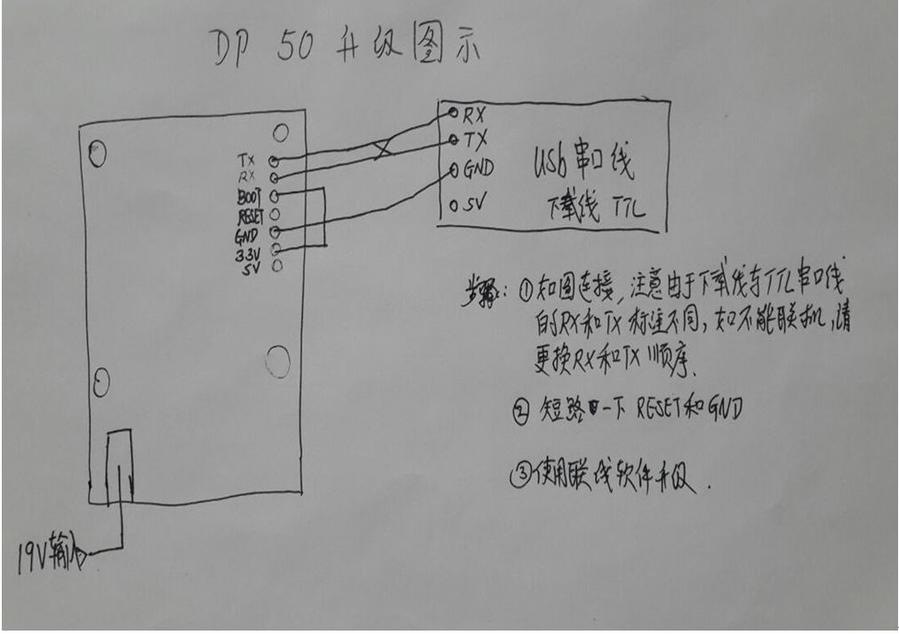 DP 50 升级图示
TX
RX
BOOT
RESET
GND
3.3V
5V
RX
TX
GND
5V
Usb 串口线
下载线 TTL
19V输入
步骤：①如图连接，注意由于下载线与TTL串口线
的RX和TX标注不同，如不能联机，请
更换RX和TX顺序.
② 短路一下 RESET和GND
③使用联线软件升级.